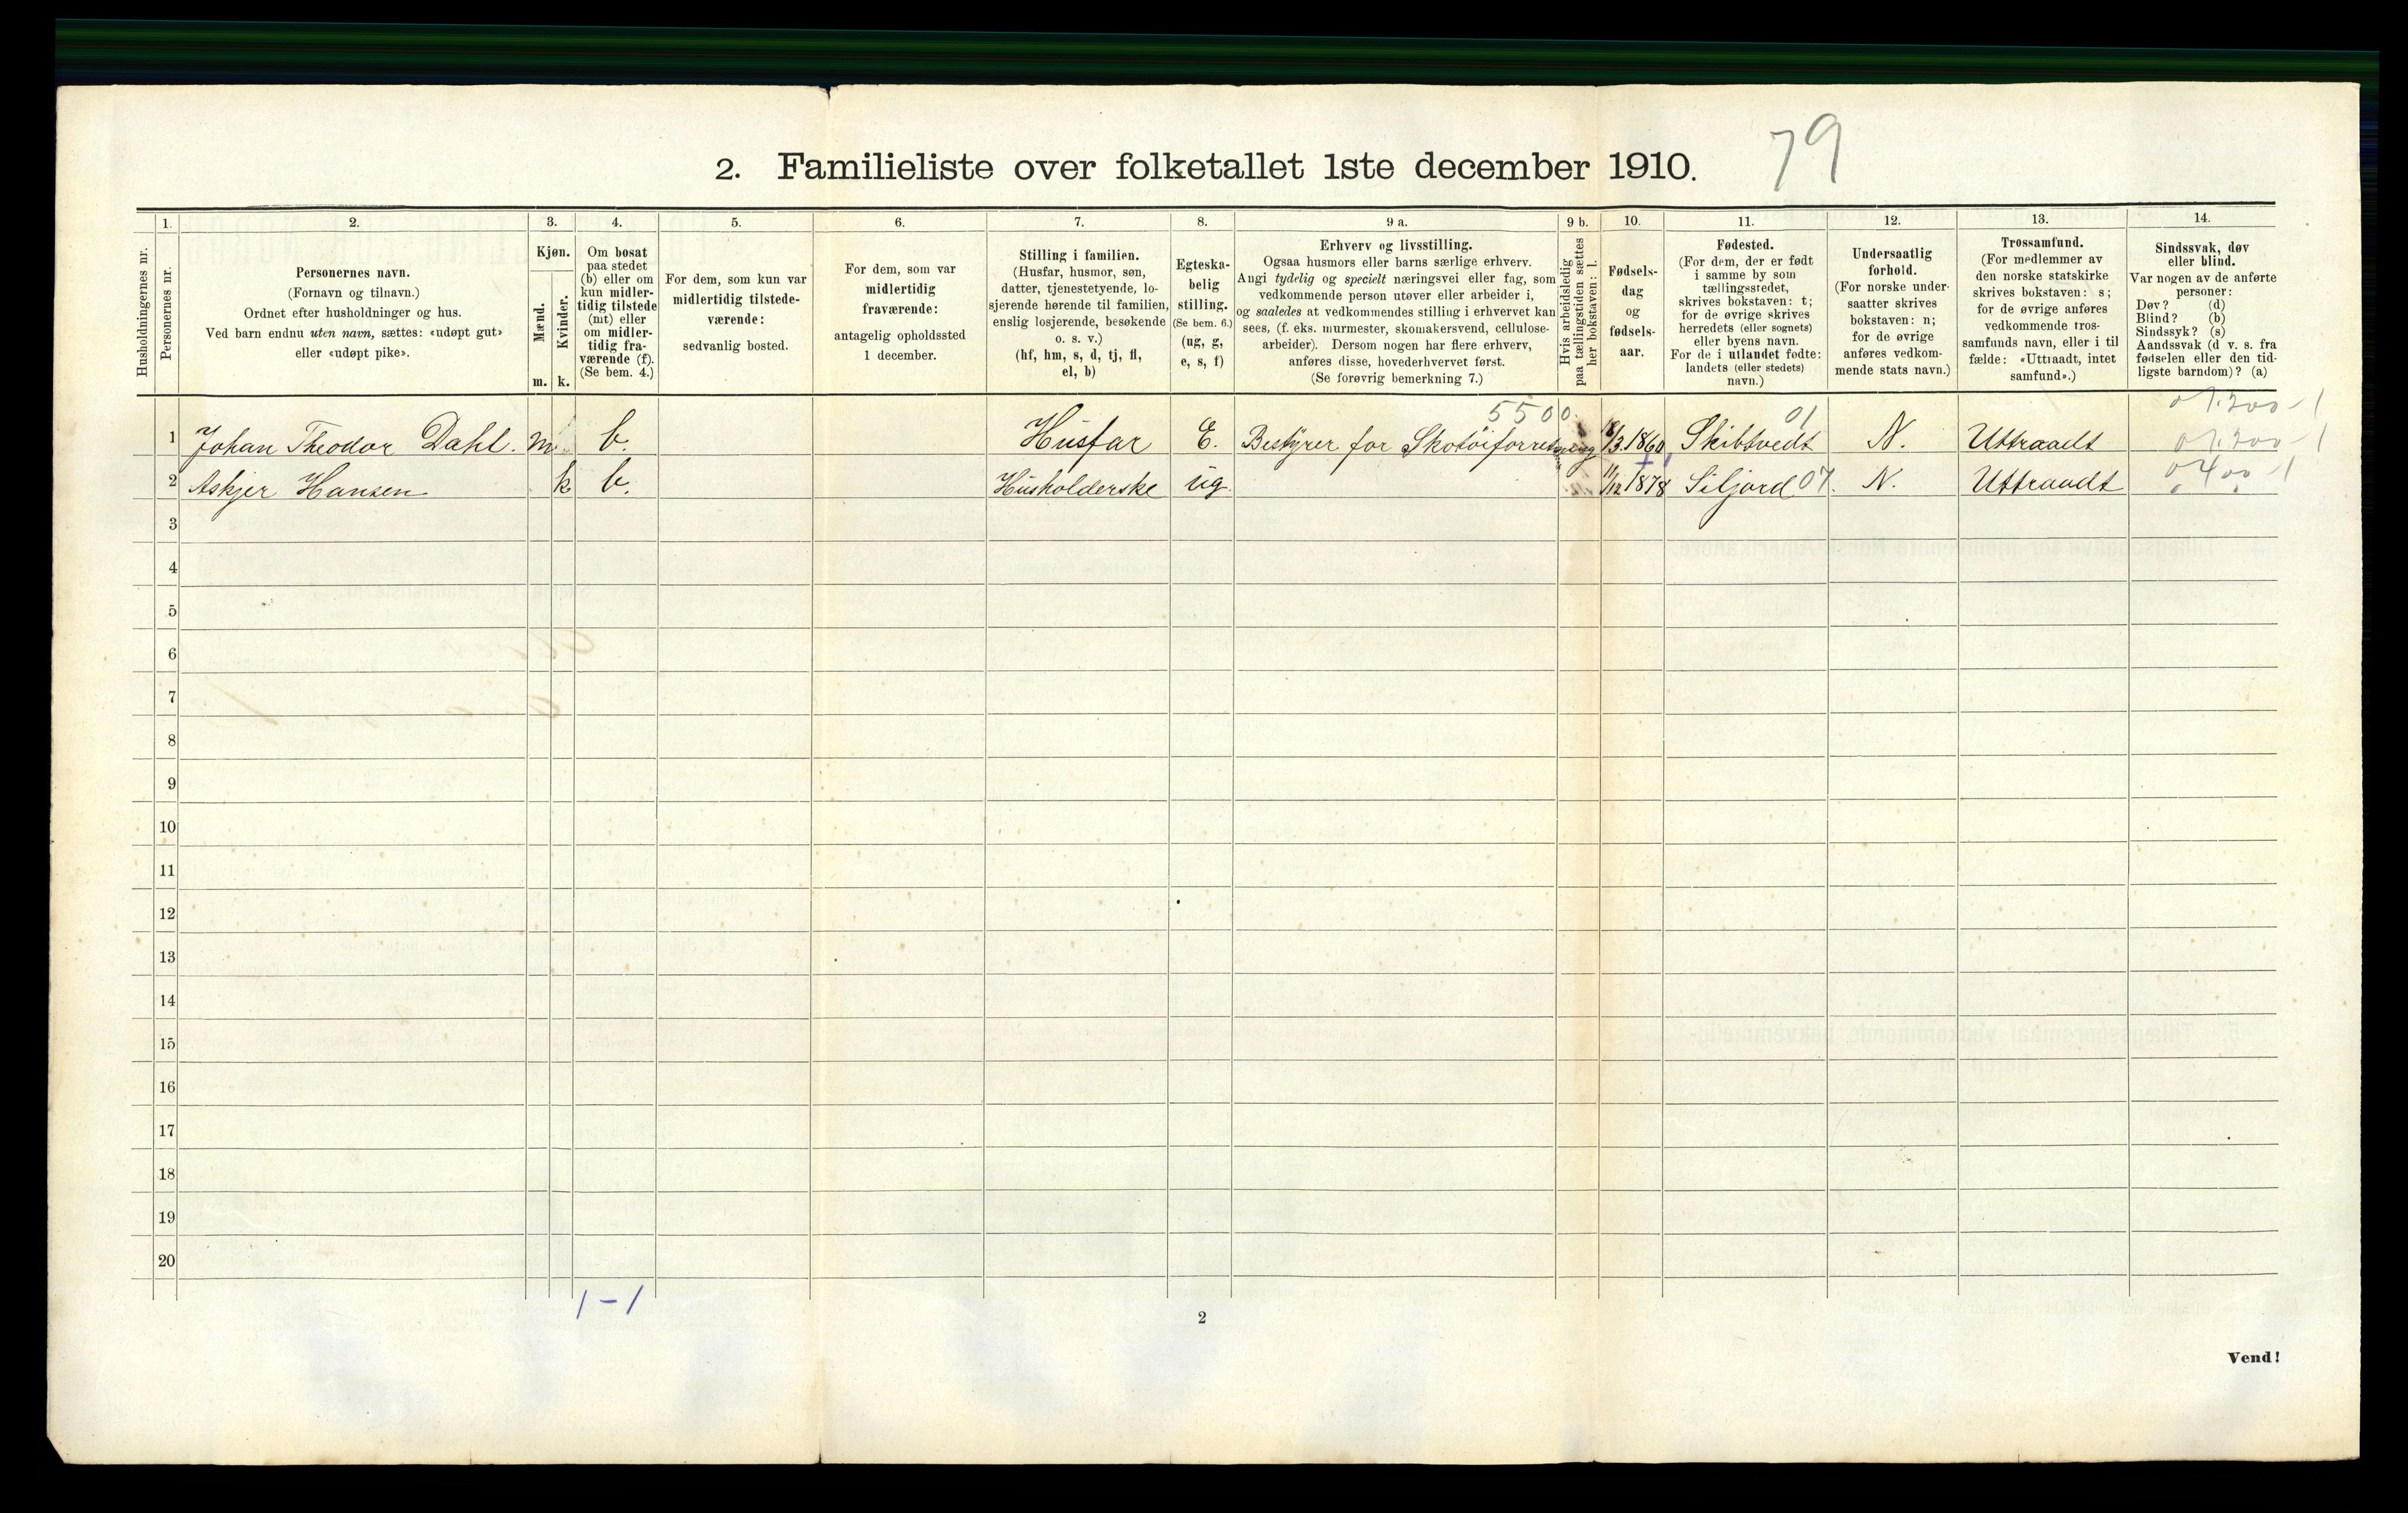 2. Familieliste over folketallet 1ste december 1910.
79
Husholdningernes nr.
1.
Personernes nr.
2.
Personernes navn.
(Fornavn og tilnavn.)
Ordnet efter husholdninger og hus.
Ved barn endnu uten navn, sættes: «udøpt gut»
eller «udøpt pike».
3.
Kjøn.
Mænd.
m.
Kvinder.
k.
4.
Om bosat
paa stedet
(b) eller om
kun midler-
tidig tilstede
(mt) eller
om midler-
tidig fra-
værende (f).
(Se bem. 4.)
5.
For dem, som kun var
midlertidig tilstede-
værende:
sedvanlig bosted.
6.
For dem, som var
midlertidig
fraværende:
antagelig opholdssted
1 december.
7.
Stilling i familien.
(Husfar, husmor, søn,
datter, tjenestetyende, lo-
sjerende hørende til familien,
enslig losjerende, besøkende
o. s. v.)
(hf, hm, s, d, tj, fl,
el, b)
8.
Egteska-
belig
stilling.
(Se bem. 6.)
(ug, g,
e, s, f)
9 a.
Erhverv og livsstilling.
Ogsaa husmors eller barns særlige erhverv.
Angi tydelig og specielt næringsvei eller fag, som
vedkommende person utøver eller arbeider i,
og saaledes at vedkommendes stilling i erhvervet kan
sees, (f. eks. murmester, skomakersvend, cellulose-
arbeider). Dersom nogen har flere erhverv,
anføres disse, hovederhvervet først.
(Se forøvrig bemerkning 7.)
9 b.
Hvis arbeidsledig
paa tællingstiden sættes
her bokstaven: l.
10.
Fødsels-
dag
og
fødsels-
aar.
11.
Fødested.
(For dem, der er født
i samme by som
tællingsstedet,
skrives bokstaven: t;
for de øvrige skrives
herredets (eller sognets)
eller byens navn.
For de i utlandet fødte:
landets (eller stedets)
navn.)
12.
Undersaatlig
forhold.
(For norske under-
saatter skrives
bokstaven: n;
for de øvrige
anføres vedkom-
mende stats navn.)
13.
Trossamfund.
(For medlemmer av
den norske statskirke
skrives bokstaven: s;
for de øvrige anføres
vedkommende tros-
samfunds navn, eller i til
fælde: «Uttraadt, intet
samfund».)
14.
Sindssvak, døv
eller blind.
Var nogen av de anførte
personer:
Døv? (d)
Blind? (b)
Sindssyk? (s)
Aandssvak (d. v. s. fra
fødselen eller den tid-
ligste barndom)? (a)
5500 01
1 Johan Theodor Dahl. m b. Husfar E. Bestyrer for Skotøiforretning 1860 Skibtvedt N. Uttraadt
2 Askjer Hansen k b. Husholderske ug 11/12 1878 Siljord 07. N. Uttraadt
3
4
5
6
7
8
9
10
11
12
13
14
15
16
17
18
19
20
1-1
2
Vend!